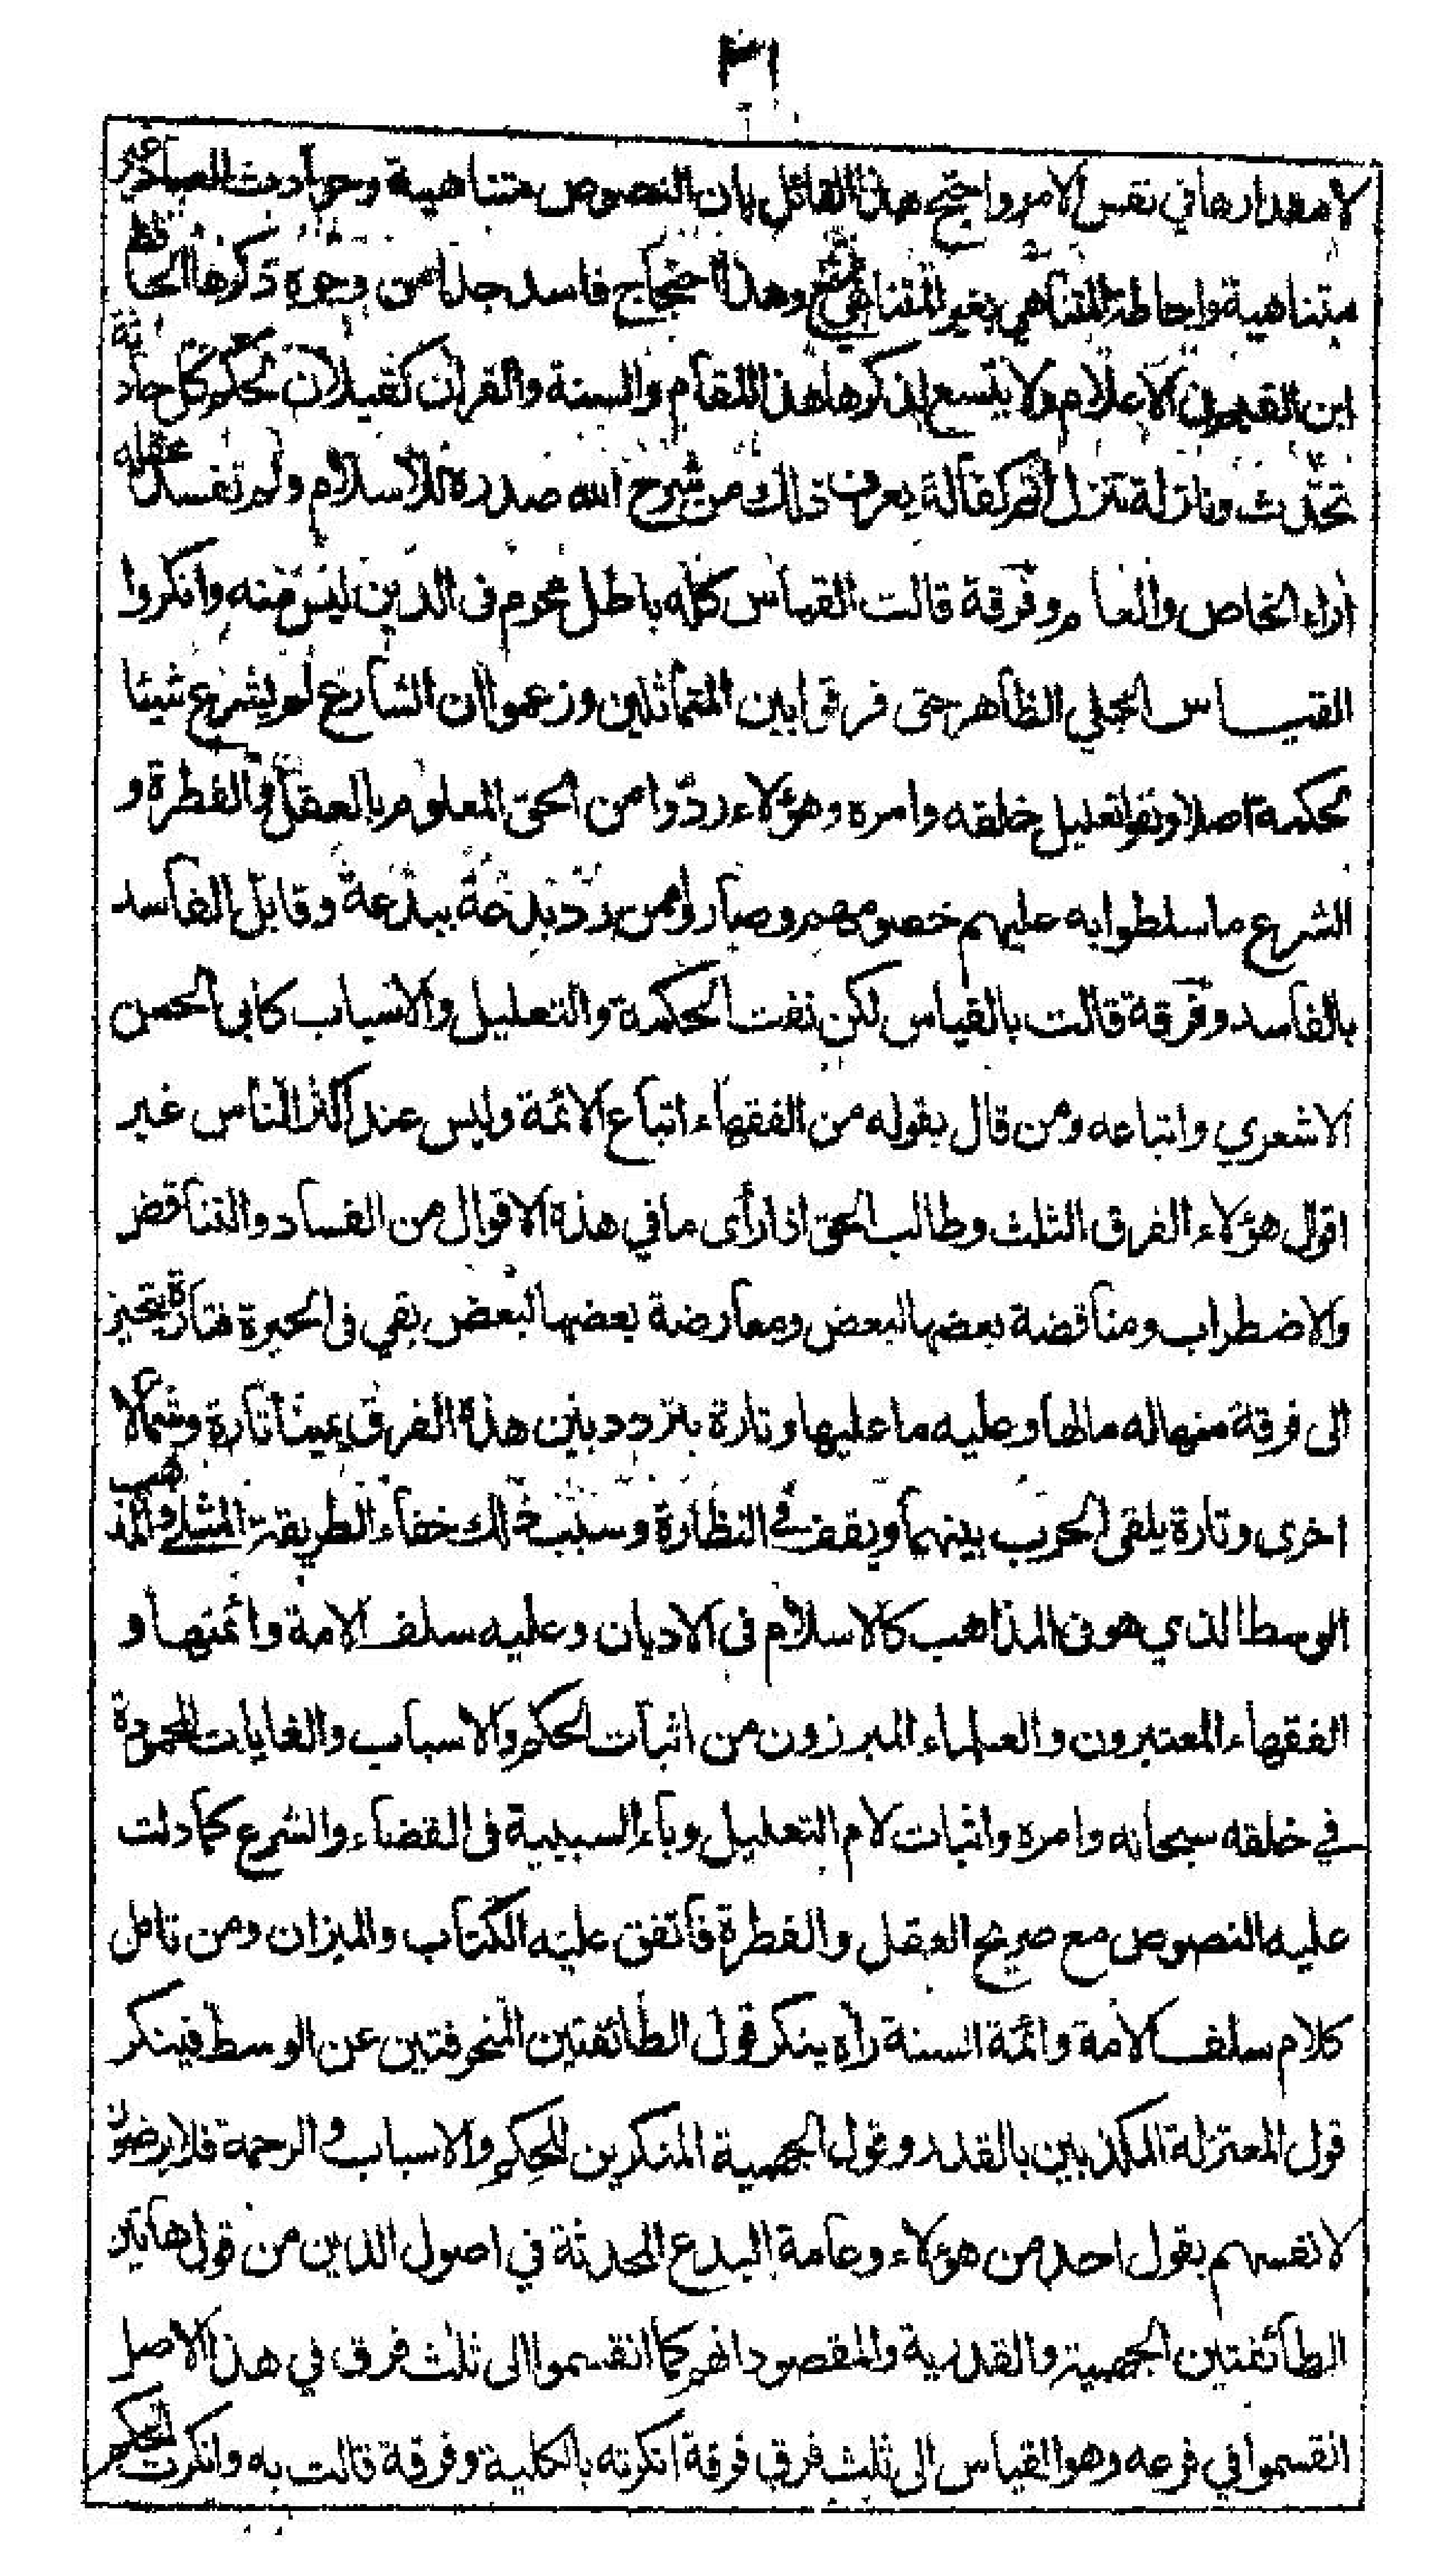 ٣١
لا مقدارها في نفس الامر واحتج هذا القائل بان النصوص متناهية وحوادث العباد غير
متناهية واحاطة المتناهي بغير المتناهي ممتنع وهذا احتجاج فاسد جدا من وجوه ذكرها الحافظ
ابن القيم في الاعلام ولا يتسع لذكرها هذا المقام والسنة والقرآن كفيلان بحكم كل حادثة
تحدث ونازلة تنزل اتم كفالة يعرف ذلك من شرح الله صدره للاسلام ولم تفسد عقله
اراء الخاص والعام وفرقة قالت القياس كله باطل محرم فى الدين ليس منه وانكروا
القياس الجلي الظاهر حتى فرقوا بين المتماثلين وزعموا ان الشارع لم يشرع شيئا
لحكمة اصلا ونفوا تعليل خلقه وامره وهؤلاء ردّوا من الحق المعلوم بالعقل والفطرة و
الشرع ما سلطوا به عليهم خصومهم وصاروا ممن ردّ بدعة ببدعة وقابل الفاسد
بالفاسد وفرقة قالت بالقياس لكن نفت الحكمة والتعليل والاسباب كابى الحسن
الاشعري واتباعه ومن قال بقوله من الفقهاء اتباع الائمة وليس عند اكثر الناس غير
اقوال هؤلاء الفرق الثلث وطالب الحق اذا رأى ما في هذه الاقوال من الفساد والتناقض
والاضطراب ومناقضة بعضها لبعض ومعارضة بعضها لبعض بقي فى الحيرة فتارة يتحيز
الى فرقة منها له ما لها وعليه ما عليها وتارة يتردد بين هذه الفرق يمينا تارة وشمالا
اخرى وتارة يلقى الحرب بينهما ويقف في النظارة وسبب ذلك خفاء الطريقة المثلى والمذهب
الوسط الذي هو فى المذاهب كالاسلام فى الاديان وعليه سلف الامة وائمتها و
الفقهاء المعتبرون والعلماء المبرزون من اثبات الحكم والاسباب والغايات المحمودة
في خلقه سبحانه وامره واثبات لام التعليل وباء السببية فى القضاء والشرع كما دلت
عليه النصوص مع صريح العقل والفطرة فاتفق عليه الكتاب والميزان ومن تامل
كلام سلف الامة وائمة السنة رآه ينكر قول الطائفتين المنحرفتين عن الوسط فينكر
قول المعتزلة المكذبين بالقدر وقول الجهمية المنكرين للحكم والاسباب والرحمة فلا يرضون
لانفسهم بقول احد من هؤلاء وعامة البدع المحدثة في اصول الدين من قول هاتين
الطائفتين الجهمية والقدرية والمقصود انهم كما انقسموا الى ثلث فرق في هذا الاصل
انقسموا في فرعه وهو القياس الى ثلث فرق فرقة انكرته بالكلية وفرقة قالت به وانكرت الحكم